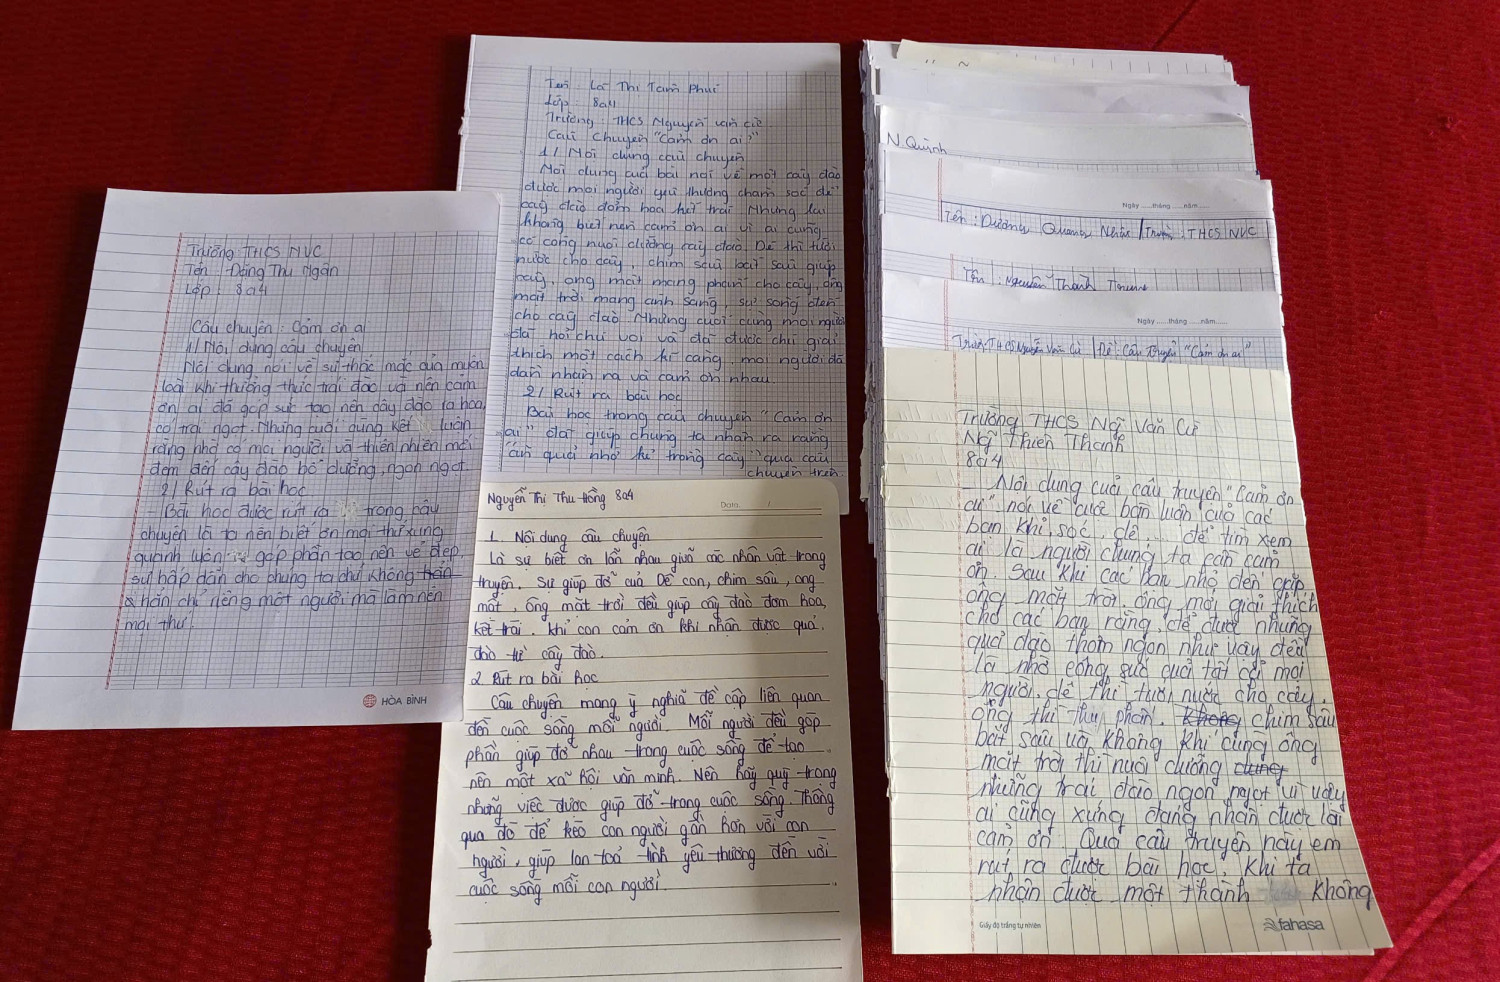 Trường: THCS NVC
Tên : Đặng Thu Ngân
Lớp : 8a4
Câu chuyện : Cảm ơn ai
1/ Nội dung câu chuyện
Nội dung nói về sự thắc mắc của muôn
loài khi thưởng thức trái đào và nên cảm
ơn ai đã góp sức tạo nên cây đào ra hoa,
có trái ngọt. Nhưng cuối cùng kết luận
rằng nhờ có mọi người và thiên nhiên mới
đem đến cây đào bổ dưỡng, ngon ngọt.
2/ Rút ra bài học
- Bài học được rút ra trong câu
chuyện là ta nên biết ơn mọi thứ xung
quanh luôn góp phần tạo nên vẻ đẹp,
sự hấp dẫn cho chúng ta chứ không
phải chỉ riêng một người mà làm nên
mọi thứ.
HÒA BÌNH
Tên : Lê Thị Tâm
Lớp : 8a4
Trường : THCS Nguyễn Văn Cừ
Câu chuyện "Cảm ơn ai?"
1/ Nội dung câu chuyện
Nội dung của bài nói về một cây đào
được mọi người yêu thương chăm sóc để
cây đào đơm hoa kết trái. Nhưng lại
không biết nên cảm ơn ai vì ai cũng
có công nuôi dưỡng cây đào. Dê thì tưới
nước cho cây, chim sâu bắt sâu giúp
cây, ong mật mang phấn cho cây, ông
mặt trời mang ánh sáng, sự sống đến
cho cây đào. Nhưng cuối cùng mọi người
đã hỏi chú voi và đã được chú giải
thích một cách kĩ càng, mọi người đã
dần nhận ra và cảm ơn nhau.
2/ Rút ra bài học
Bài học trong câu chuyện "Cảm ơn
ai" đã giúp chúng ta nhận ra rằng
"ăn quả nhớ kẻ trồng cây" qua câu
chuyện trên.
Nguyễn Thị Thu Hồng 8a4
Date /
1. Nội dung câu chuyện
Là sự biết ơn lẫn nhau giữa các nhân vật trong
truyện. Sự giúp đỡ của Dê con, chim sâu, ong
mật, ông mặt trời đều giúp cây đào đơm hoa,
kết trái. Khỉ con cảm ơn khi nhận được quả
đào từ cây đào.
2. Rút ra bài học
Câu chuyện mang ý nghĩa đề cập liên quan
đến cuộc sống mỗi người. Mỗi người đều góp
phần giúp đỡ nhau trong cuộc sống để tạo
nên một xã hội văn minh. Nên hãy quý trọng
những việc được giúp đỡ trong cuộc sống. Thông
qua đó để kéo con người gần hơn với con
người, giúp lan toả tình yêu thương đến với
cuộc sống mỗi con người.
N. Quỳnh
Ngày ......tháng ......năm ......
Tên : Dương Quang Trường : THCS NVC
Tên : Nguyễn Thành Trung
Ngày ......tháng ......năm ......
Trường: THCS Nguyễn Văn Cừ Đề: Câu Truyện "Cảm ơn ai"
Trường THCS Ng~ Văn Cừ
Ng~ Thiên Thanh
8a4
- Nội dung của câu truyện "Cảm ơn
ai" nói về cuộc bàn luận của các
bạn khỉ, sóc, dê,... để tìm xem
ai là người chúng ta cần cảm
ơn. Sau khi các bạn nhỏ đến gặp
ông mặt trời, ông mới giải thích
cho các bạn rằng, để được những
quả đào thơm ngon như vậy đều
là nhờ công sức của tất cả mọi
người, dê thì tưới nước cho cây,
ong thì thụ phấn. Không chim sâu
bắt sâu và không khí cùng ông
mặt trời thì nuôi dưỡng
những trái đào ngon ngọt vì vậy
ai cũng xứng đáng nhận được lời
cảm ơn. Qua câu truyện này em
rút ra được bài học, khi ta
nhận được một thành không
Giấy độ trắng tự nhiên
fahasa